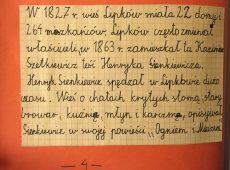 W 1827 r. wieś Lipków miała 22 domy i
264 mieszkańców. Lipków często zmieniał
właścicieli, w 1863 r. zamieszkał tu Kazimierz
Szetkiewicz teść Henryka Sienkiewicza.
Henryk Sienkiewicz spędzał w Lipkowie dużo
czasu. Wieś o chatach krytych słomą, stary
browar, kuźnię, młyn i karczmę, opisywał
Sienkiewicz w swojej powieści "Ogniem i Mieczem"
— 4 —